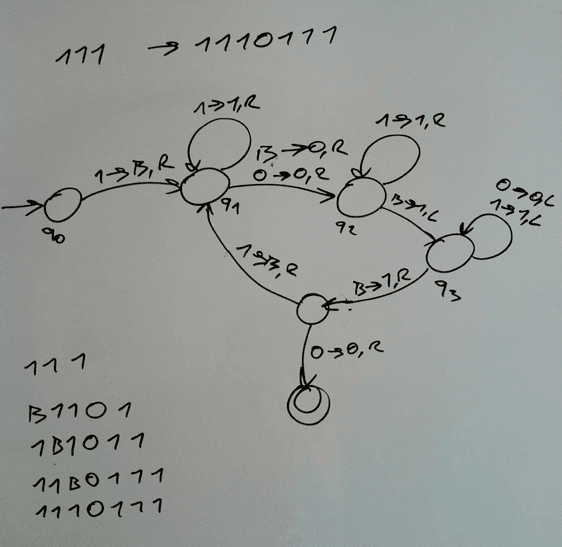 111 → 1110111
1→1,R
1→1,R
B→0,R
1→B,R
0→0,R
0→0,L
1→1,L
B→1,L
q0
q1
q2
q3
1→B,R
B→1,R
0→0,R
111
B1101
1B1011
11B0111
1110111